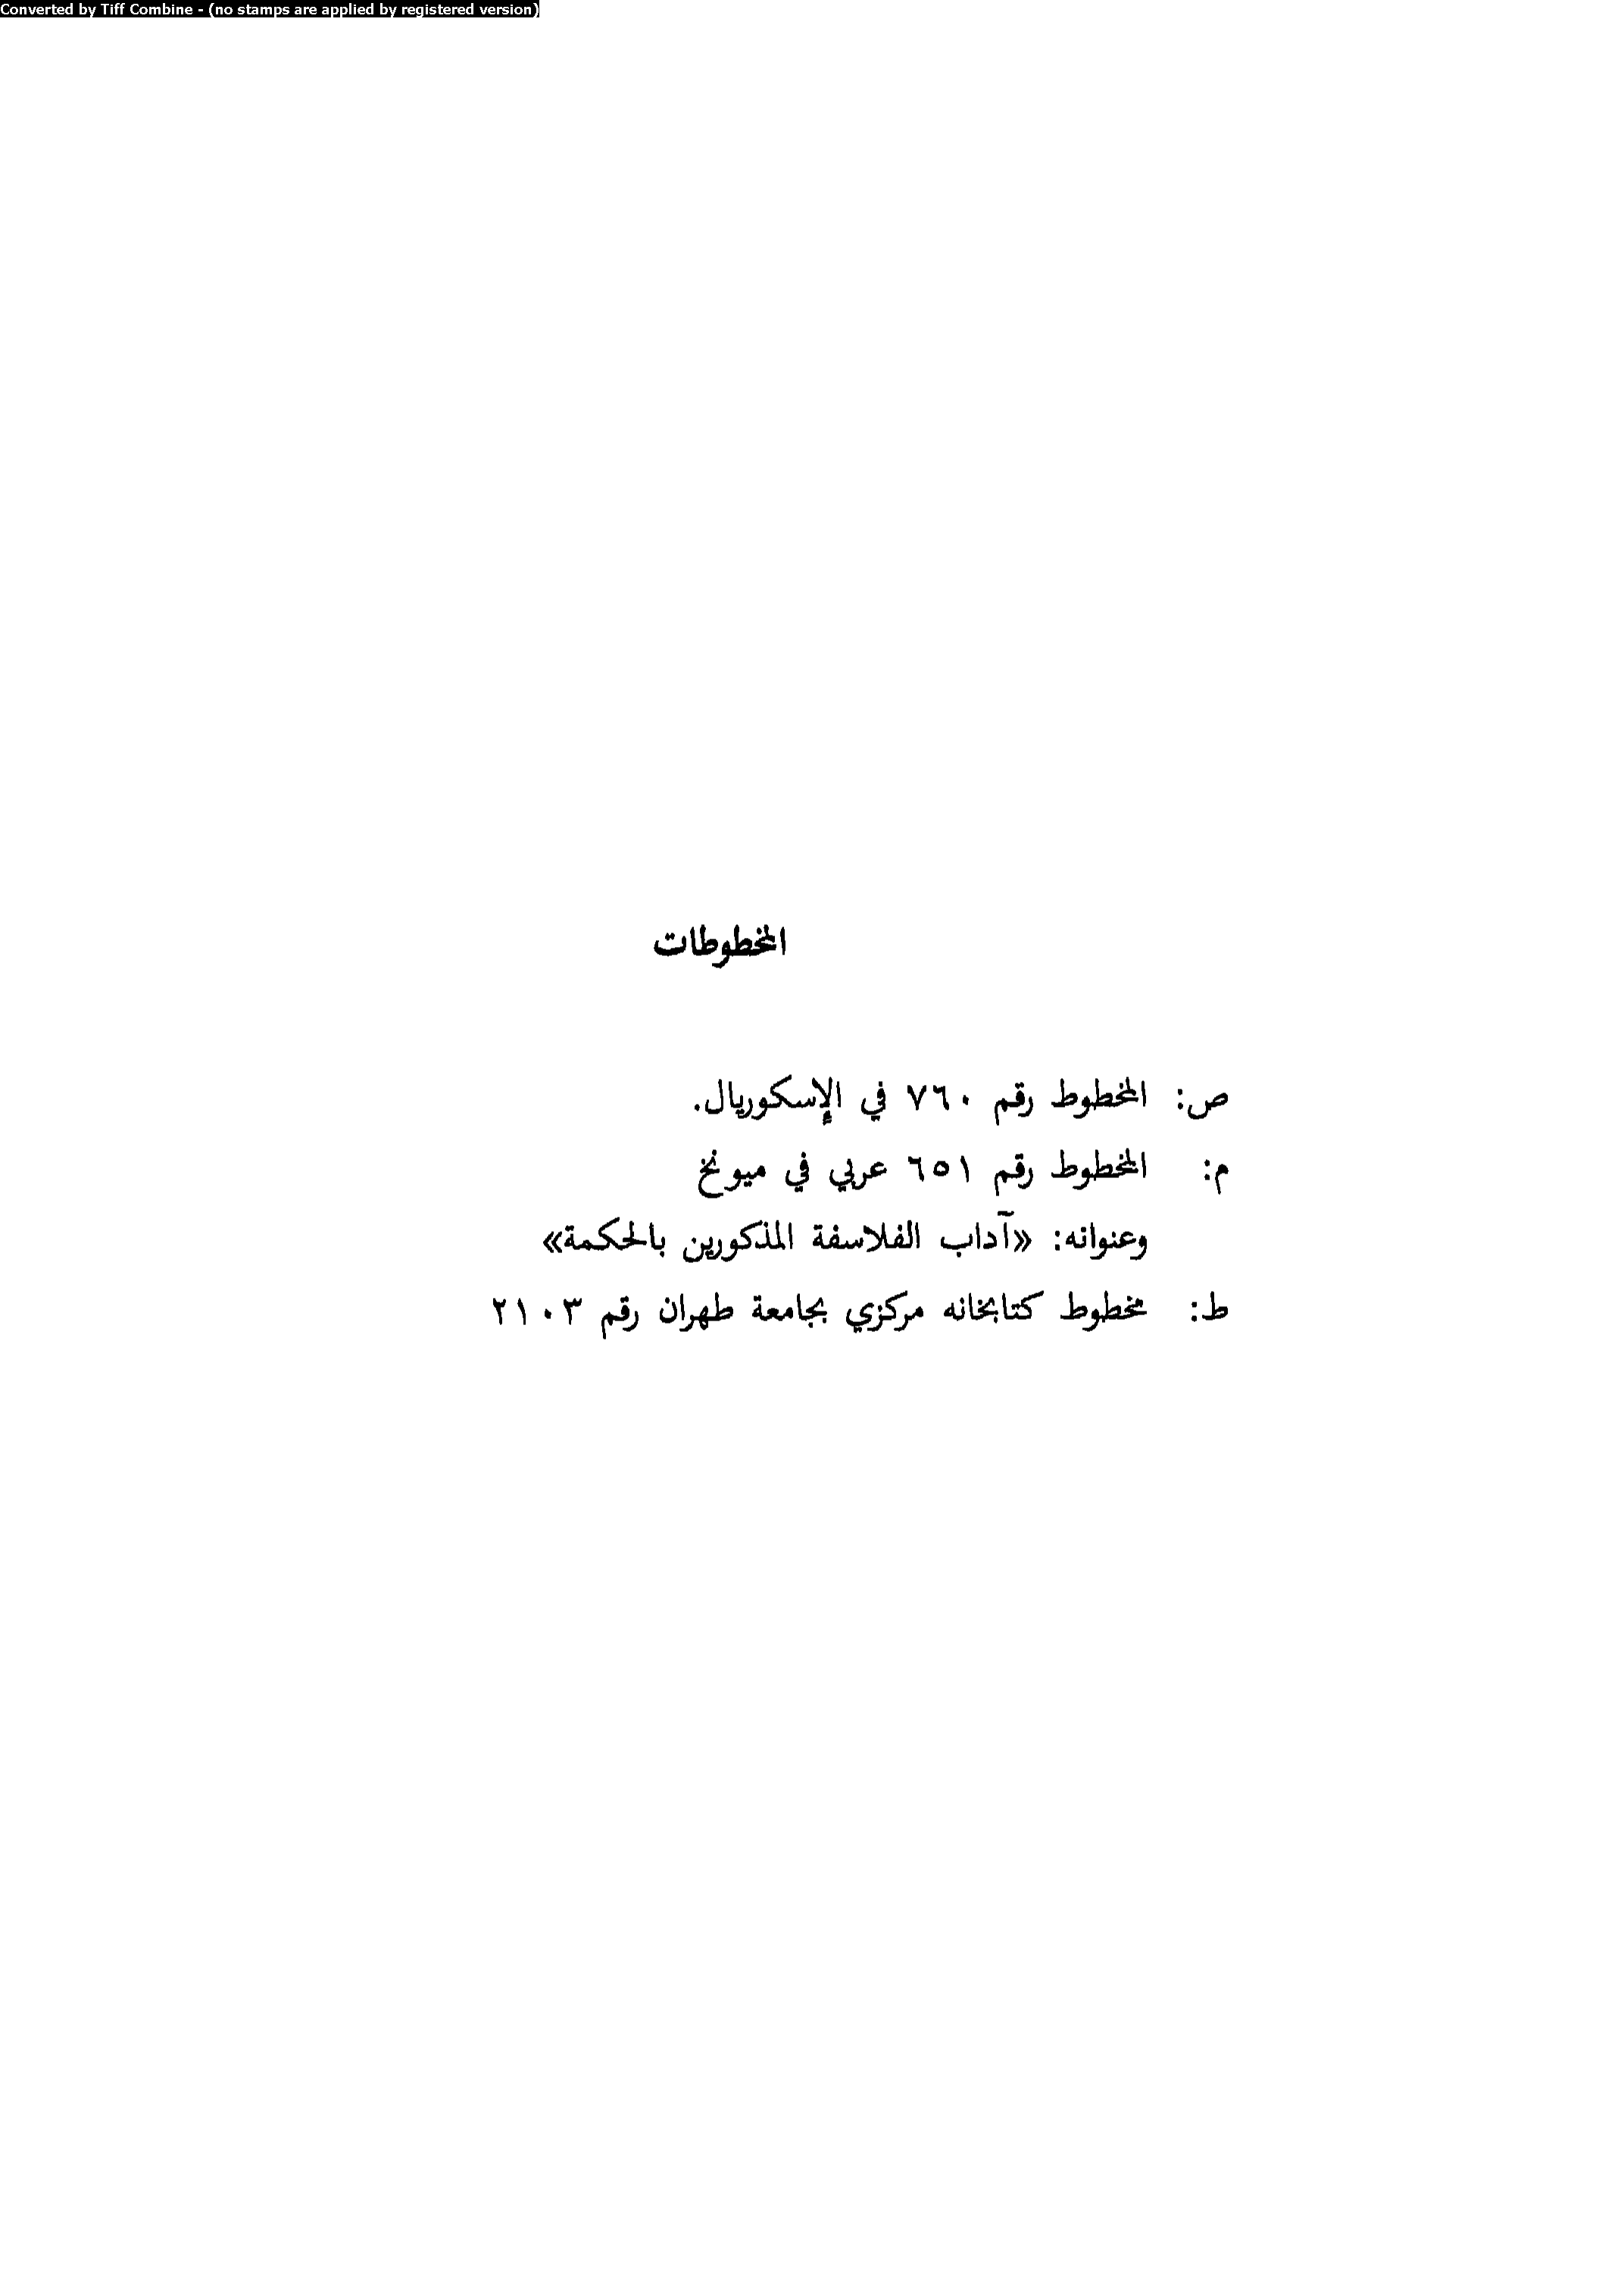 Converted by Tiff Combine - (no stamps are applied by registered version)
المخطوطات
ص: المخطوط رقم ٧٦٠ في الإسكوريال.
م: المخطوط رقم ٦٥١ عربي في ميونخ
وعنوانه: «آداب الفلاسفة المذكورين بالحكمة»
ط: مخطوط كتابخانه مركزي بجامعة طهران رقم ٢١٠٣